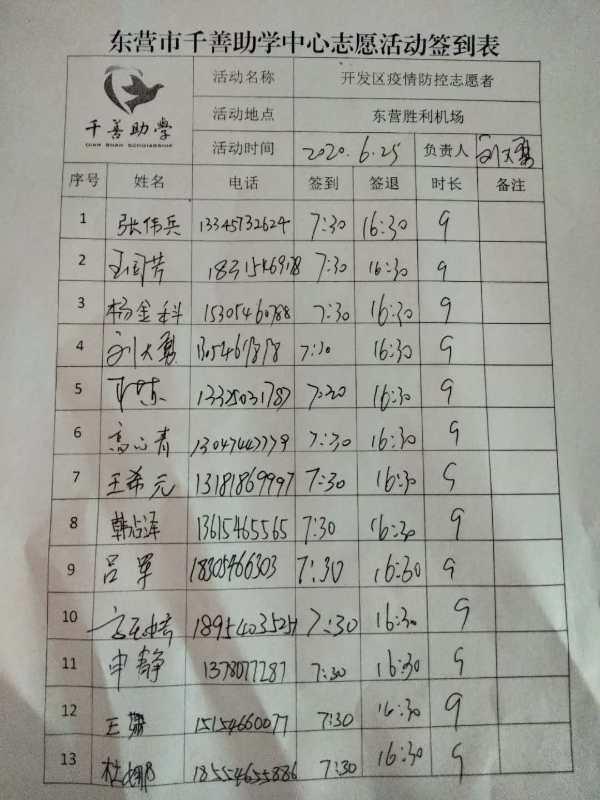 东营市千善助学中心志愿活动签到表
千善助学
QIAN SHAN SCHOLARSHIP
活动名称 开发区疫情防控志愿者
活动地点 东营胜利机场
活动时间 2020.6.25 负责人 刘大勇
序号 姓名 电话 签到 签退 时长 备注
1 张伟兵 13345732624 7:30 16:30 9
2 7:30 16:30 9
3 杨金科 15305460788 7:30 16:30 9
4 刘大勇 7:30 16:30 9
5 7:30 16:30 9
6 高心青 13047447779 7:30 16:30 9
7 王希元 13181869997 7:30 16:30 9
8 韩占泽 13615465565 7:30 16:30 9
9 吕军 18305466303 7:30 16:30 9
10 7:30 16:30 9
11 申静 7:30 16:30 9
12 王 15154660077 7:30 16:30 9
13 杜娜 18554655886 7:30 16:30 9